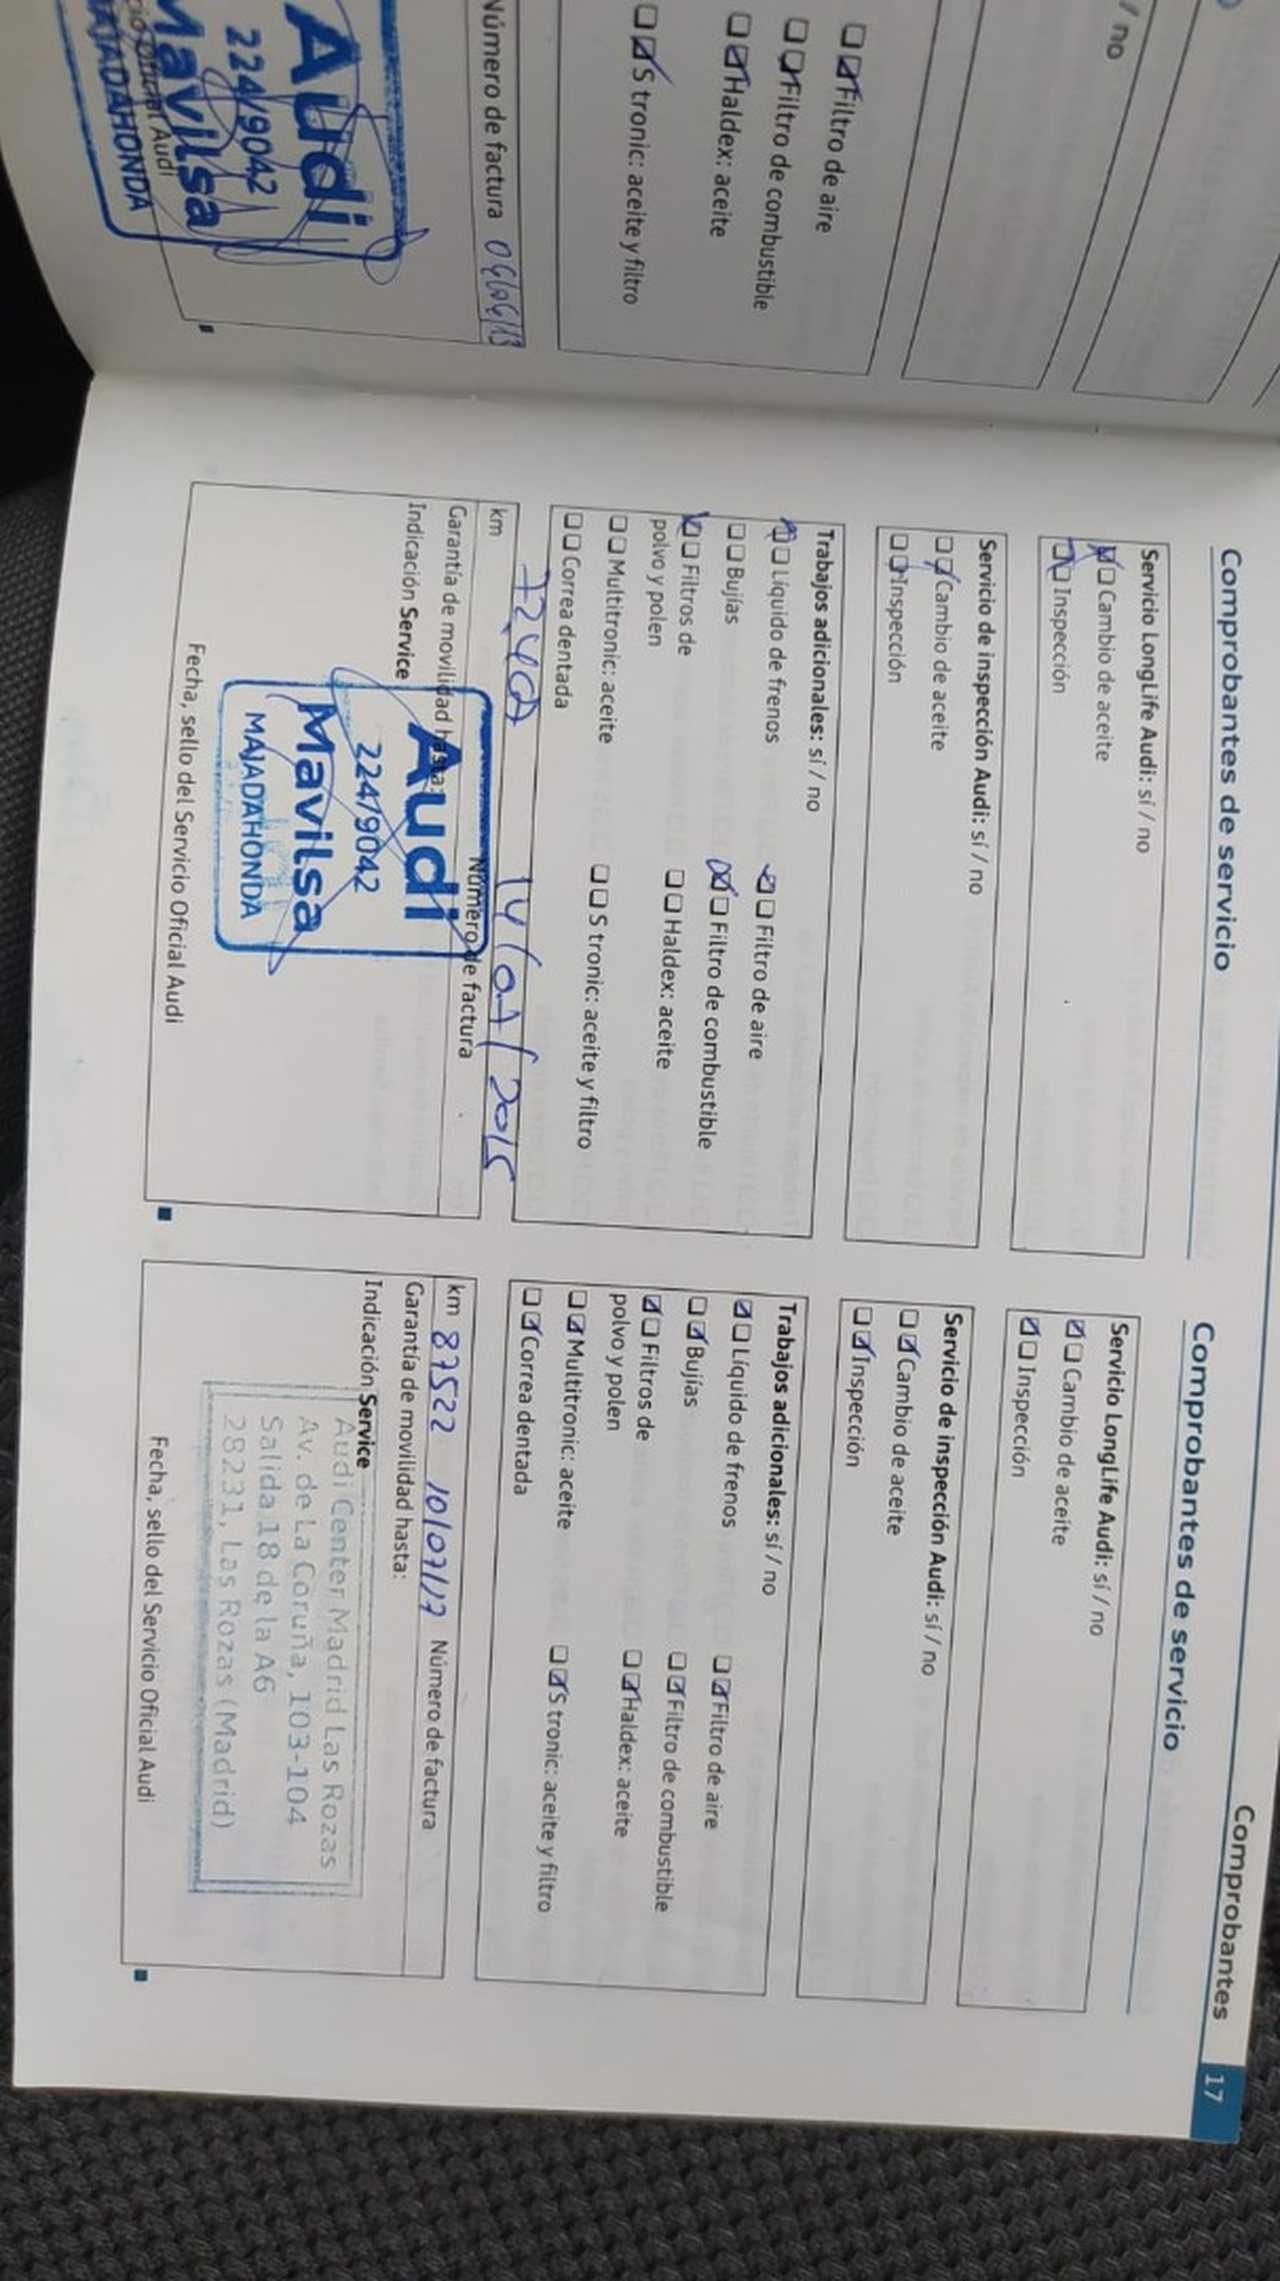 / no
Filtro de aire
Filtro de combustible
Haldex: aceite
S tronic: aceite y filtro
Número de factura
Audi
224/9042
Mavilsa
MAJADAHONDA
Oficial Audi
Comprobantes 17
Comprobantes de servicio
Servicio LongLife Audi: sí / no
Cambio de aceite
Inspección
Servicio de inspección Audi: sí / no
Cambio de aceite
Inspección
Trabajos adicionales: sí / no
Líquido de frenos
Filtro de aire
Bujías
Filtro de combustible
Filtros de
polvo y polen
Haldex: aceite
Multitronic: aceite
S tronic: aceite y filtro
Correa dentada
km 14/07/2015
Garantía de movilidad hasta: Número de factura
Indicación Service
Audi
224/9042
Mavilsa
MAJADAHONDA
Fecha, sello del Servicio Oficial Audi
Comprobantes de servicio
Servicio LongLife Audi: sí / no
Cambio de aceite
Inspección
Servicio de inspección Audi: sí / no
Cambio de aceite
Inspección
Trabajos adicionales: sí / no
Líquido de frenos
Filtro de aire
Bujías
Filtro de combustible
Filtros de
polvo y polen
Haldex: aceite
Multitronic: aceite
S tronic: aceite y filtro
Correa dentada
km 87522 10/07/17 Número de factura
Garantía de movilidad hasta:
Indicación Service
Audi Center Madrid Las Rozas
Av. de La Coruña, 103-104
Salida 18 de la A6
28231, Las Rozas (Madrid)
Fecha, sello del Servicio Oficial Audi